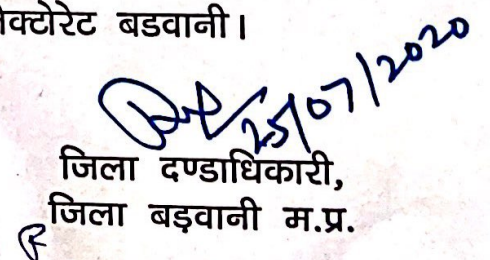 क्टोरेट बडवानी।
25/07/2020
जिला दण्डाधिकारी,
जिला बड़वानी म.प्र.